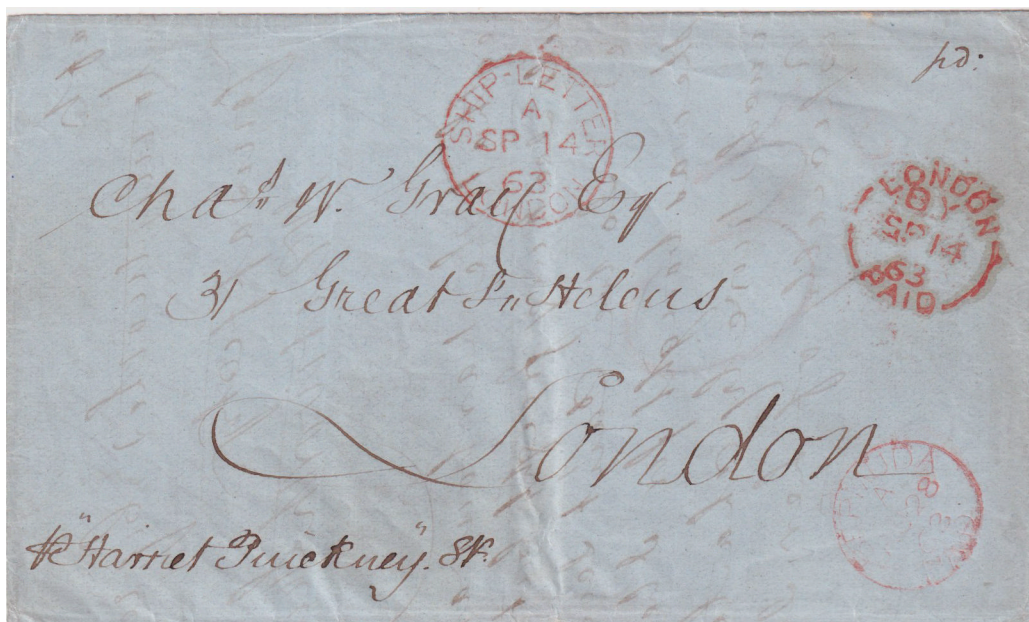 pd:
SHIP-LETTER
A
SP 14
63
LONDON
LONDON
SP 14
63
PAID
Chas W. Gray Esq
31 Great St Helens
London
"Harriet Pinckney" Str.